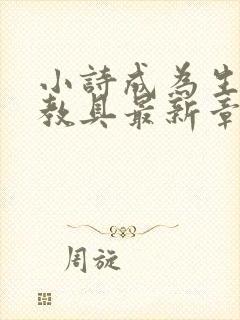 小詩成為生
教具最新章
周旋